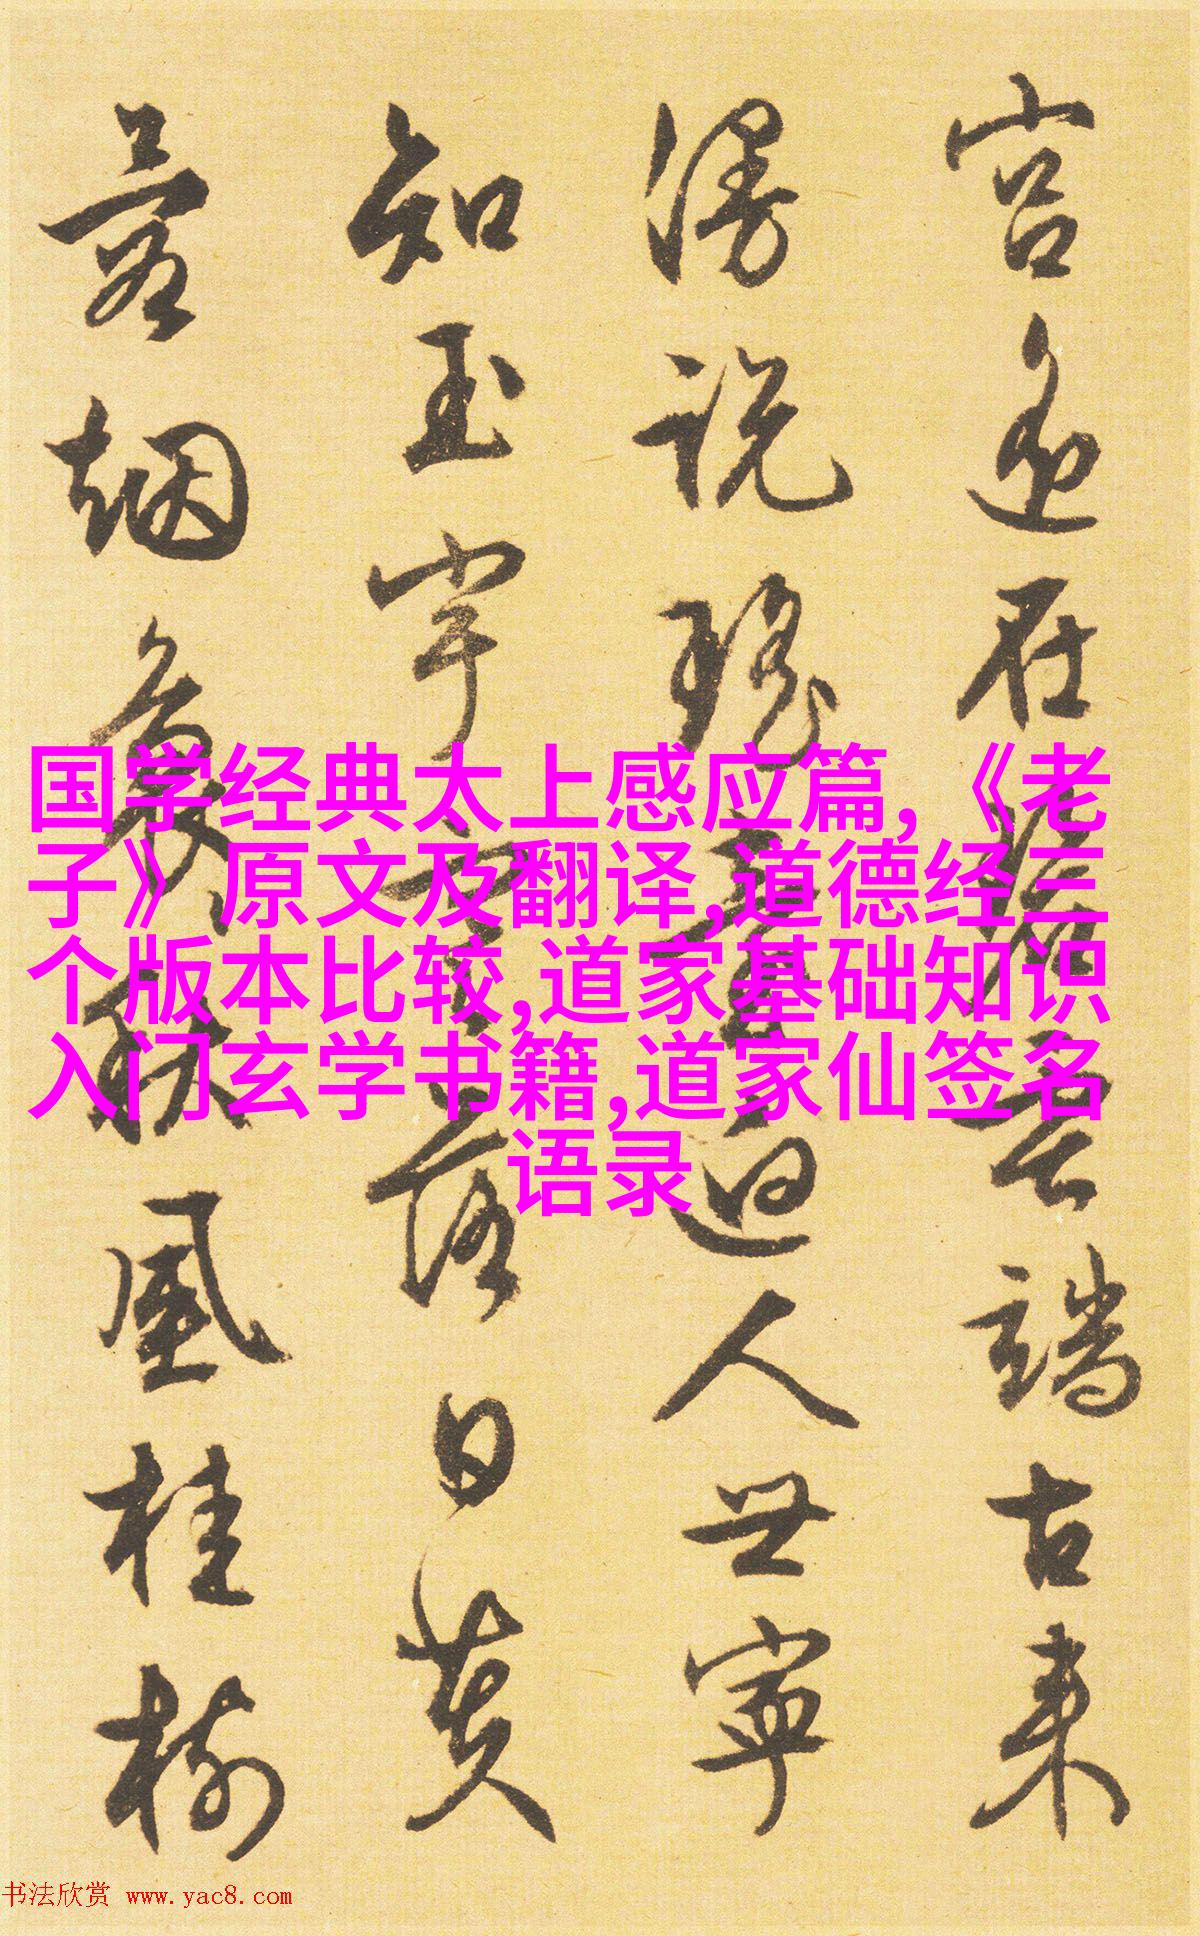 宫遥在云端古来
漫说瑶臺迴人世寧
知玉宇落日黄
烟秋風桂樹
国学经典太上感应篇,《老
子》原文及翻译,道德经三
个版本比较,道家基础知识
入门玄学书籍,道家仙签名
语录
书法欣赏 www.yac8.com